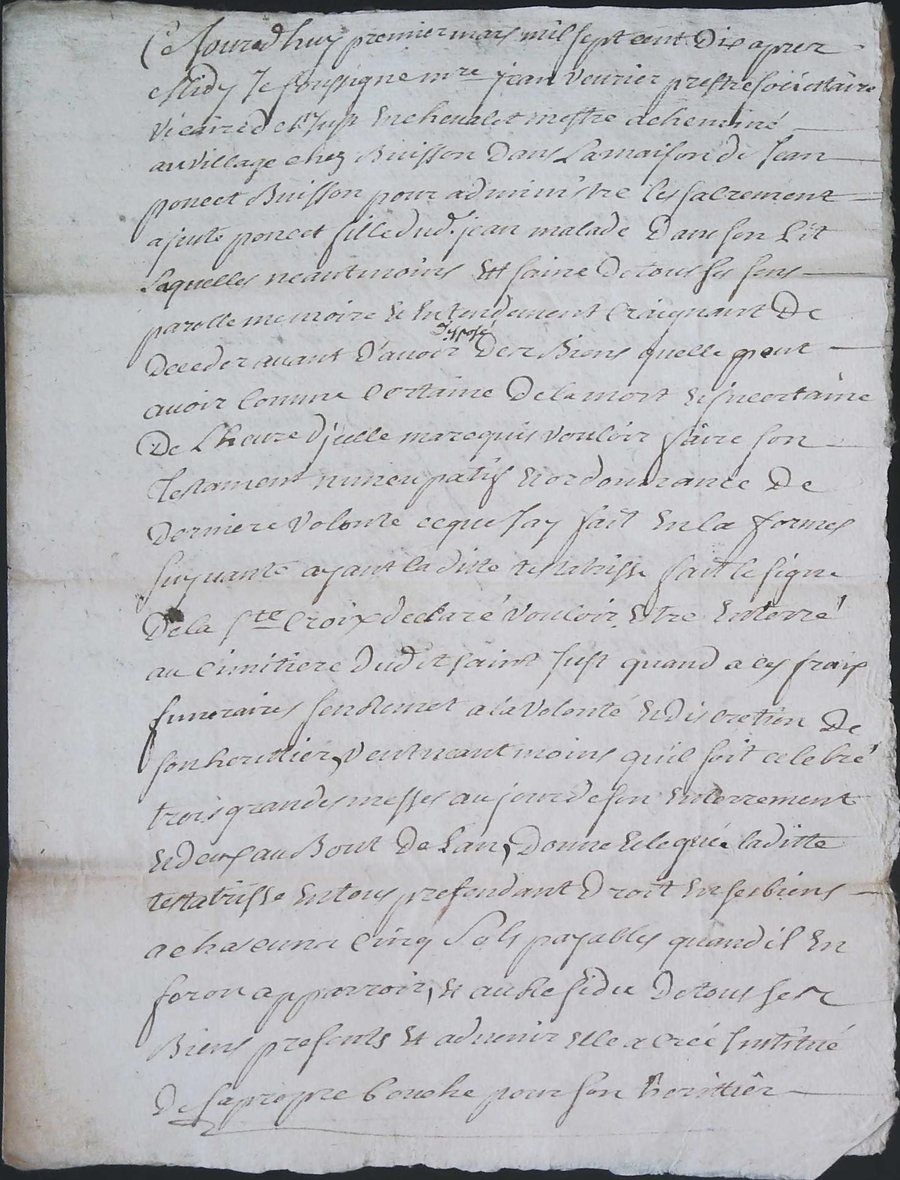 Ce Jourdhuy premier mars mil sept cent Dix apres
Midy Je soussigne mre jean veurier prestre societtaire
vicaire de st Just en chevalet mestre acheminé
au village chez Buisson Dans La maison de Jean
poncet Buisson pour administre les sacrement
a juste poncet fille dud. jean malade Dans son Lit
Laquelles neautmoins Et saine De tous ses sens
parolle memoire & Entendement craignant De
Deceder avant D'avoir Disposé Des Biens quelle peut
avoir comme certaine De la mort & incertaine
De Lheure D'jcelle ma requis vouloir faire son
Testament nuncupatif & ordonnance De
Derniere volonté ce que Jay fait En la formes
suyvante ayant laditte testatrisse fait le signe
De la Ste Croix declaré vouloir Estre Enterré
au cimitiere Dudit saint Just quand a ces fraix
funeraires sen Remet a la volonté & discretion De
son herittier, veut neantmoins quil soit celebré
trois grandes messes au jour de son Enterrement
& deux au Bout De Lan, Donne & legué laditte
testatrisse En tous pretendant Droit En ses biens
a chascuna cinq sols payables quand il En
feron apparroir, & au Residu De tous ses
Biens presents & advenir Elle a creé Institué
De sa propre bouche pour son herittier